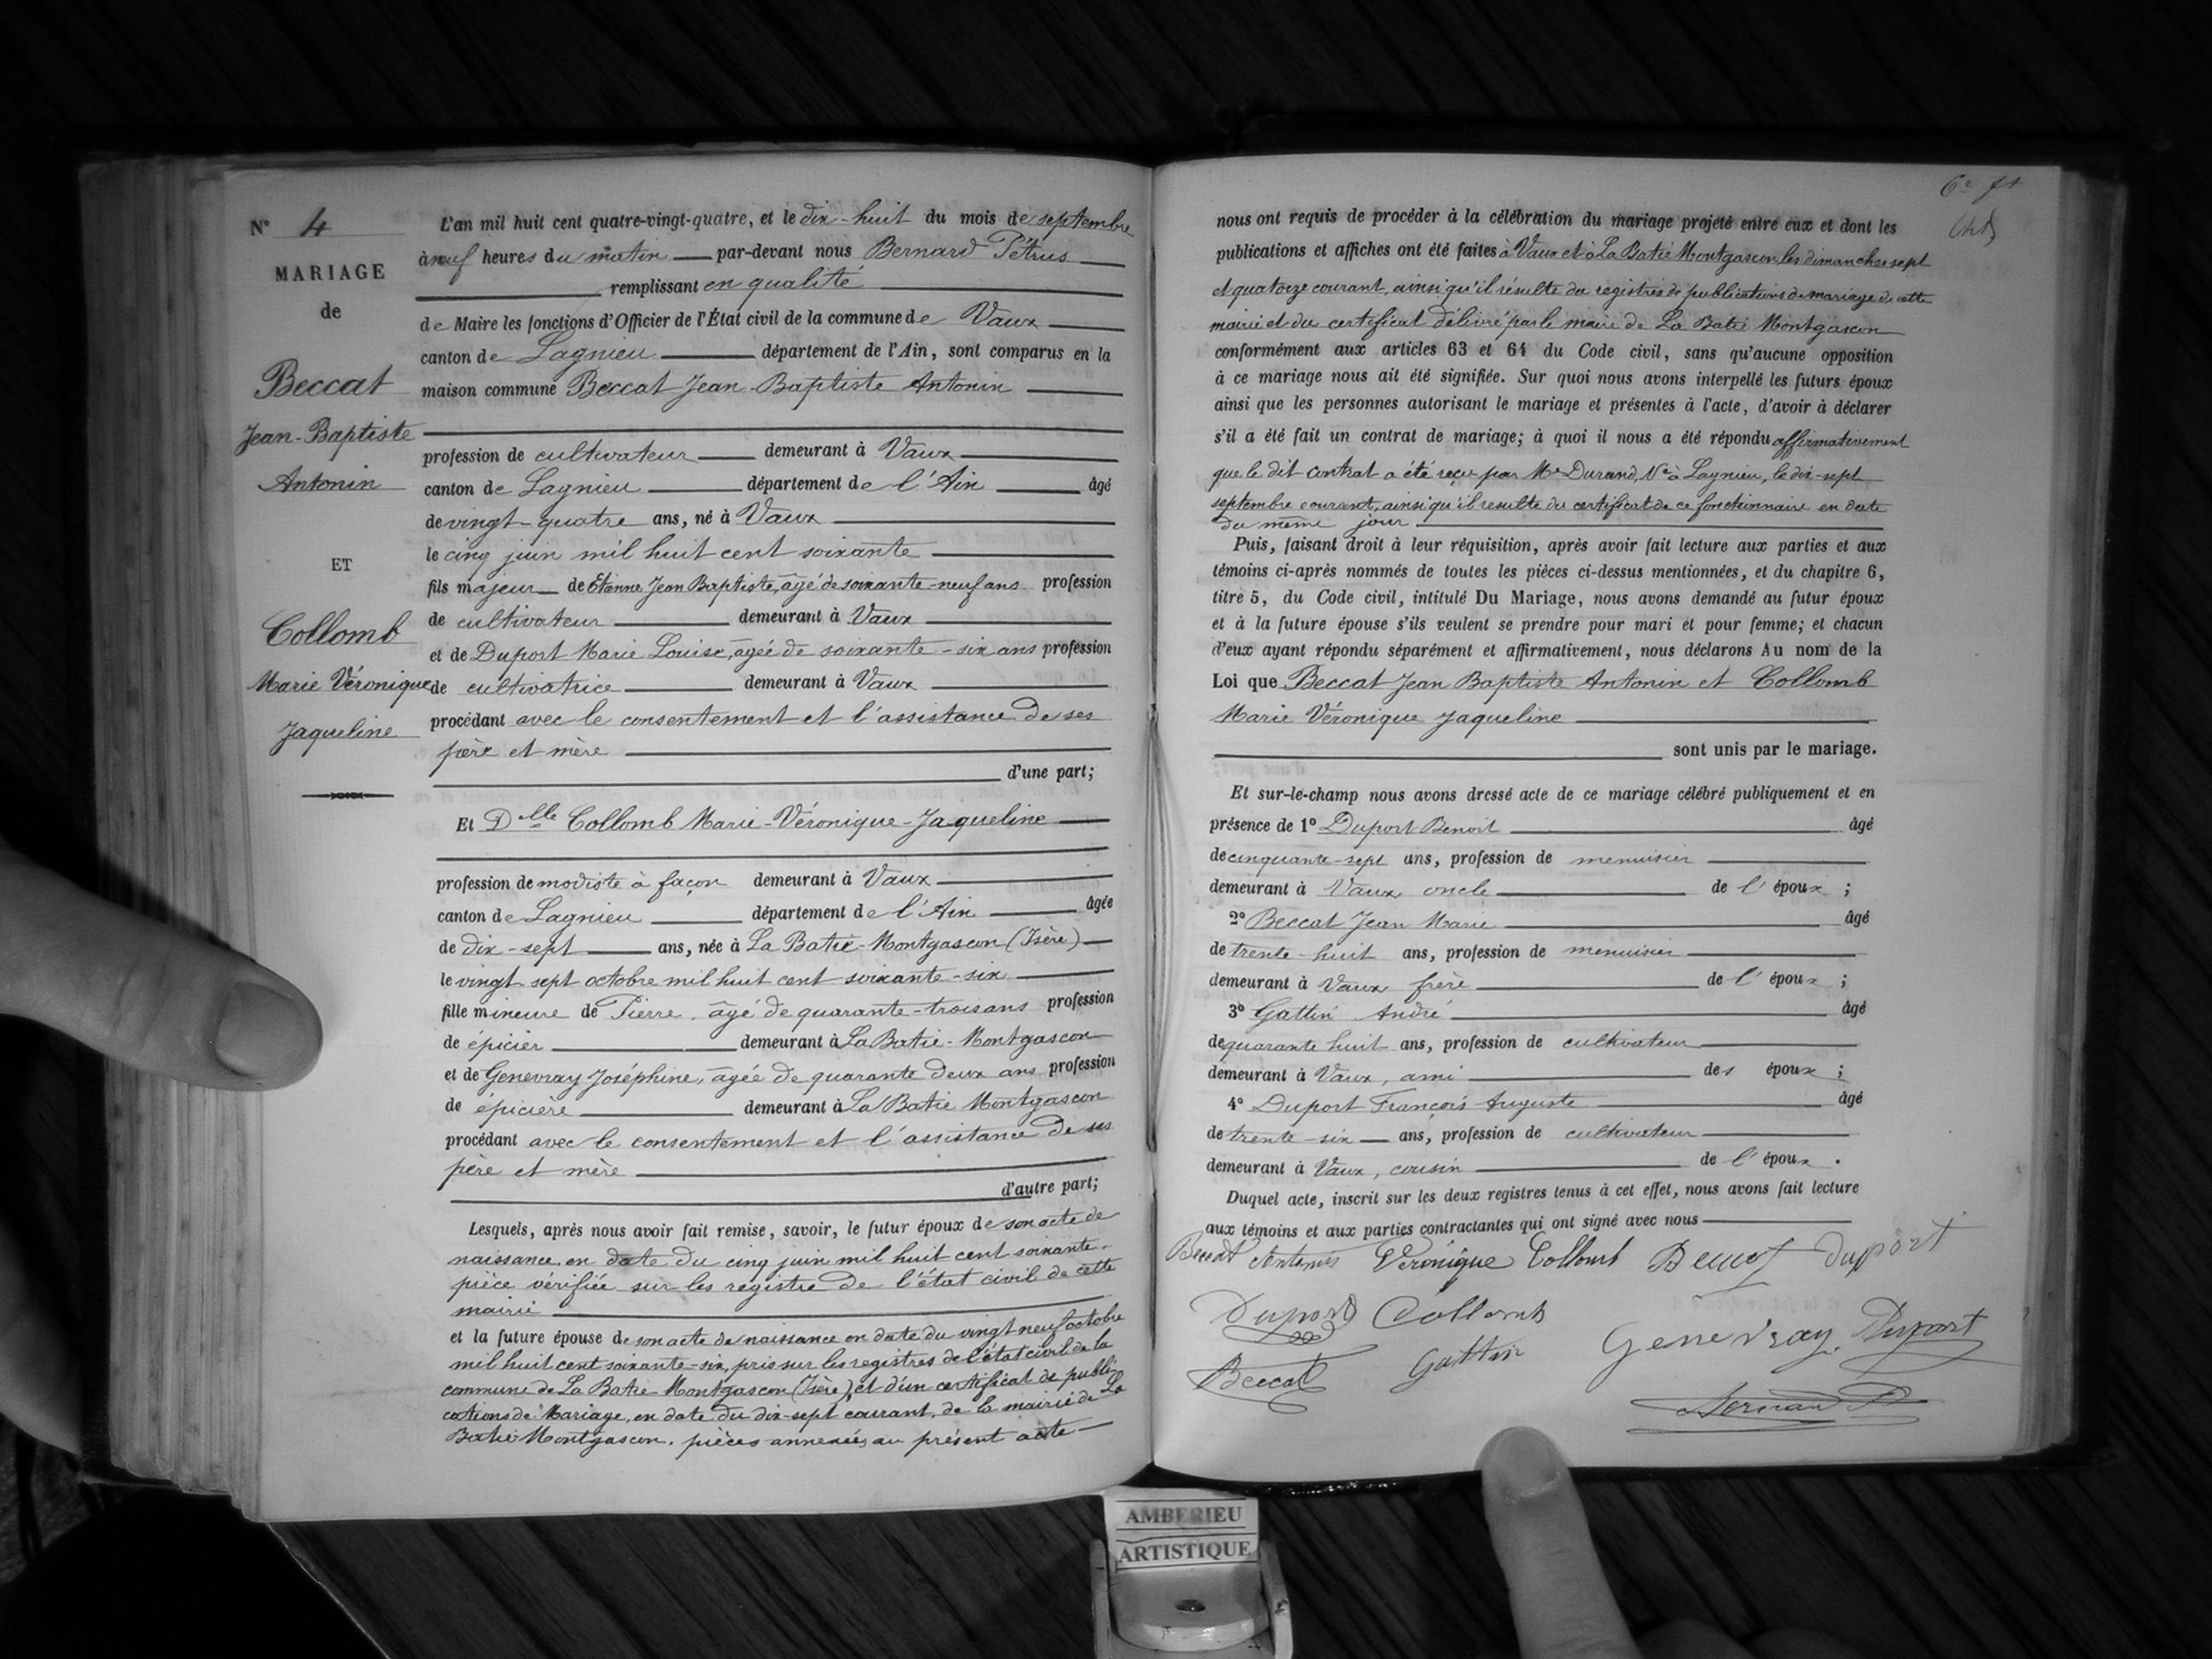 N° 4
MARIAGE
de
Beccat
Jean-Baptiste
Antonin
ET
Collomb
Marie Véronique
Jaqueline
L'an mil huit cent quatre-vingt-quatre, et le dix-huit du mois de septembre
à neuf heures du matin par-devant nous Bernard Pétrus
remplissant en qualité
de Maire les fonctions d'Officier de l'État civil de la commune de Vaux
canton de Lagnieu département de l'Ain, sont comparus en la
maison commune Beccat Jean Baptiste Antonin
profession de cultivateur demeurant à Vaux
canton de Lagnieu département de l'Ain âgé
de vingt-quatre ans, né à Vaux
le cinq juin mil huit cent soixante
fils majeur de Etienne Jean Baptiste, âgé de soixante-neuf ans profession
de cultivateur demeurant à Vaux
et de Duport Marie Louise, âgée de soixante-six ans profession
de cultivatrice demeurant à Vaux
procédant avec le consentement et l'assistance de ses
père et mère
d'une part;
Et Delle Collomb Marie-Véronique-Jaqueline
profession de modiste à façon demeurant à Vaux
canton de Lagnieu département de l'Ain âgée
de dix-sept ans, née à La Batie-Montgascon (Isère)
le vingt sept octobre mil huit cent soixante-six
fille mineure de Pierre, âgé de quarante-trois ans profession
de épicier demeurant à La Batie-Montgascon
et de Genevray Joséphine, âgée de quarante deux ans profession
de épicière demeurant à La Batie Montgascon
procédant avec le consentement et l'assistance de ses
père et mère
d'autre part;
Lesquels, après nous avoir fait remise, savoir, le futur époux de son acte de
naissance en date du cinq juin mil huit cent soixante.
pièce vérifiée sur les registre de l'état civil de cette
mairie
et la future épouse de son acte de naissance en date du vingt neuf octobre
mil huit cent soixante-six, pris sur les registres de l'état civil de la
commune de La Batie Montgascon (Isère), et d'un certificat de publi-
cations de Mariage, en date du dix-sept courant, de la mairie de La
Batie Montgascon. pièces annexées au présent acte
6e ft
nous ont requis de procéder à la célébration du mariage projeté entre eux et dont les
publications et affiches ont été faites à Vaux et à La Batie Montgascon les dimanches sept
et quatorze courant, ainsi qu'il résulte du registres de publications de mariage de cette
mairie et du certificat délivré par le maire de La Batie Montgascon
conformément aux articles 63 et 64 du Code civil, sans qu'aucune opposition
à ce mariage nous ait été signifiée. Sur quoi nous avons interpellé les futurs époux
ainsi que les personnes autorisant le mariage et présentes à l'acte, d'avoir à déclarer
s'il a été fait un contrat de mariage; à quoi il nous a été répondu affirmativement
que le dit contrat a été reçu par Me Durand, Nre à Lagnieu, le dix-sept
septembre courant, ainsi qu'il resulte du certificat de ce fonctionnaire en date
du même jour
Puis, faisant droit à leur réquisition, après avoir fait lecture aux parties et aux
témoins ci-après nommés de toutes les pièces ci-dessus mentionnées, et du chapitre 6,
titre 5, du Code civil, intitulé Du Mariage, nous avons demandé au futur époux
et à la future épouse s'ils veulent se prendre pour mari et pour femme; et chacun
d'eux ayant répondu séparément et affirmativement, nous déclarons Au nom de la
Loi que Beccat Jean Baptiste Antonin et Collomb
Marie Véronique Jaqueline
sont unis par le mariage.
Et sur-le-champ nous avons dressé acte de ce mariage célébré publiquement et en
présence de 1° Duport Benoit âgé
de cinquante-sept ans, profession de menuisier
demeurant à Vaux oncle de l'époux ;
2° Beccat Jean Marie âgé
de trente-huit ans, profession de menuisier
demeurant à Vaux frère de l'époux ;
3° Gattin André âgé
de quarante huit ans, profession de cultivateur
demeurant à Vaux, ami des époux ;
4° Duport François Auguste âgé
de trente-six ans, profession de cultivateur
demeurant à Vaux, cousin de l'époux .
Duquel acte, inscrit sur les deux registres tenus à cet effet, nous avons fait lecture
aux témoins et aux parties contractantes qui ont signé avec nous
Beccat Antonin Véronique Collomb Duport
Duport Collomb
Genevray. Duport
Beccat Gattin
Bernard P
AMBERIEU
ARTISTIQUE